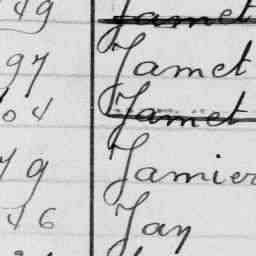 49 Jamet
97 Jamet
04 Jamet
79 Jamier
46 Jay